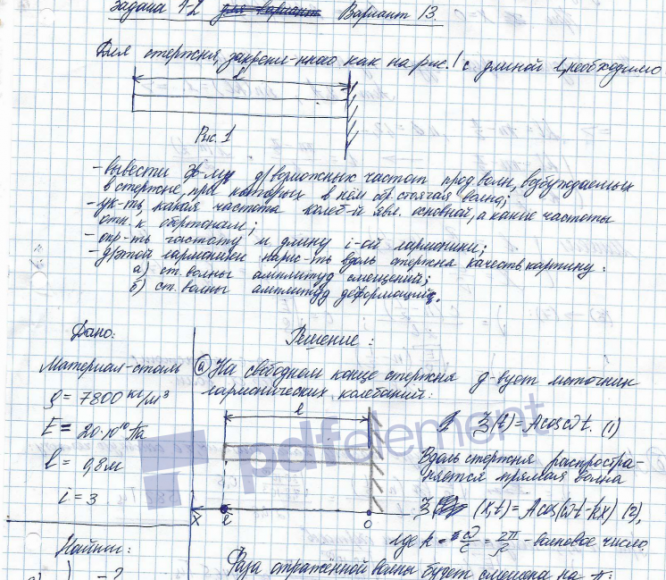 Задача 1-2 для вариант Вариант 13.
Для стержня, закрепл-нного как на рис.1 с длиной l, необходимо
l
Рис. 1
- вывести ф-лу д/возможных частот прод. волн, возбуждаемых
в стержне, при которых в нём обр. стоячая волна;
- ук-ть, какая частота колеб-й явл. основной, а какие частоты
отн. к обертонам;
- опр-ть частоту и длину i-ой гармоники;
- д/этой гармоники нарис-ть вдоль стержня качеств. картину:
а) ст. волны амплитуд смещений;
б) ст. волны амплитуд деформаций.
Дано:
Материал-сталь
ρ = 7800 кг/м³
E = 20·10¹⁰ Па
l = 0,8 м
i = 3
Найти:
- ?
Решение:
а) На свободном конце стержня д-вует источник
гармонических колебаний:
l
ξ(t) = Acosωt. (1)
Вдоль стержня распростра-
няется прямая волна
ξ (x,t) = Acos(ωt-kx) (2),
x l 0
где k = ω/c = 2π/λ - волновое число,
Фаза отражённой волны будет смещена на π:
pdfelement